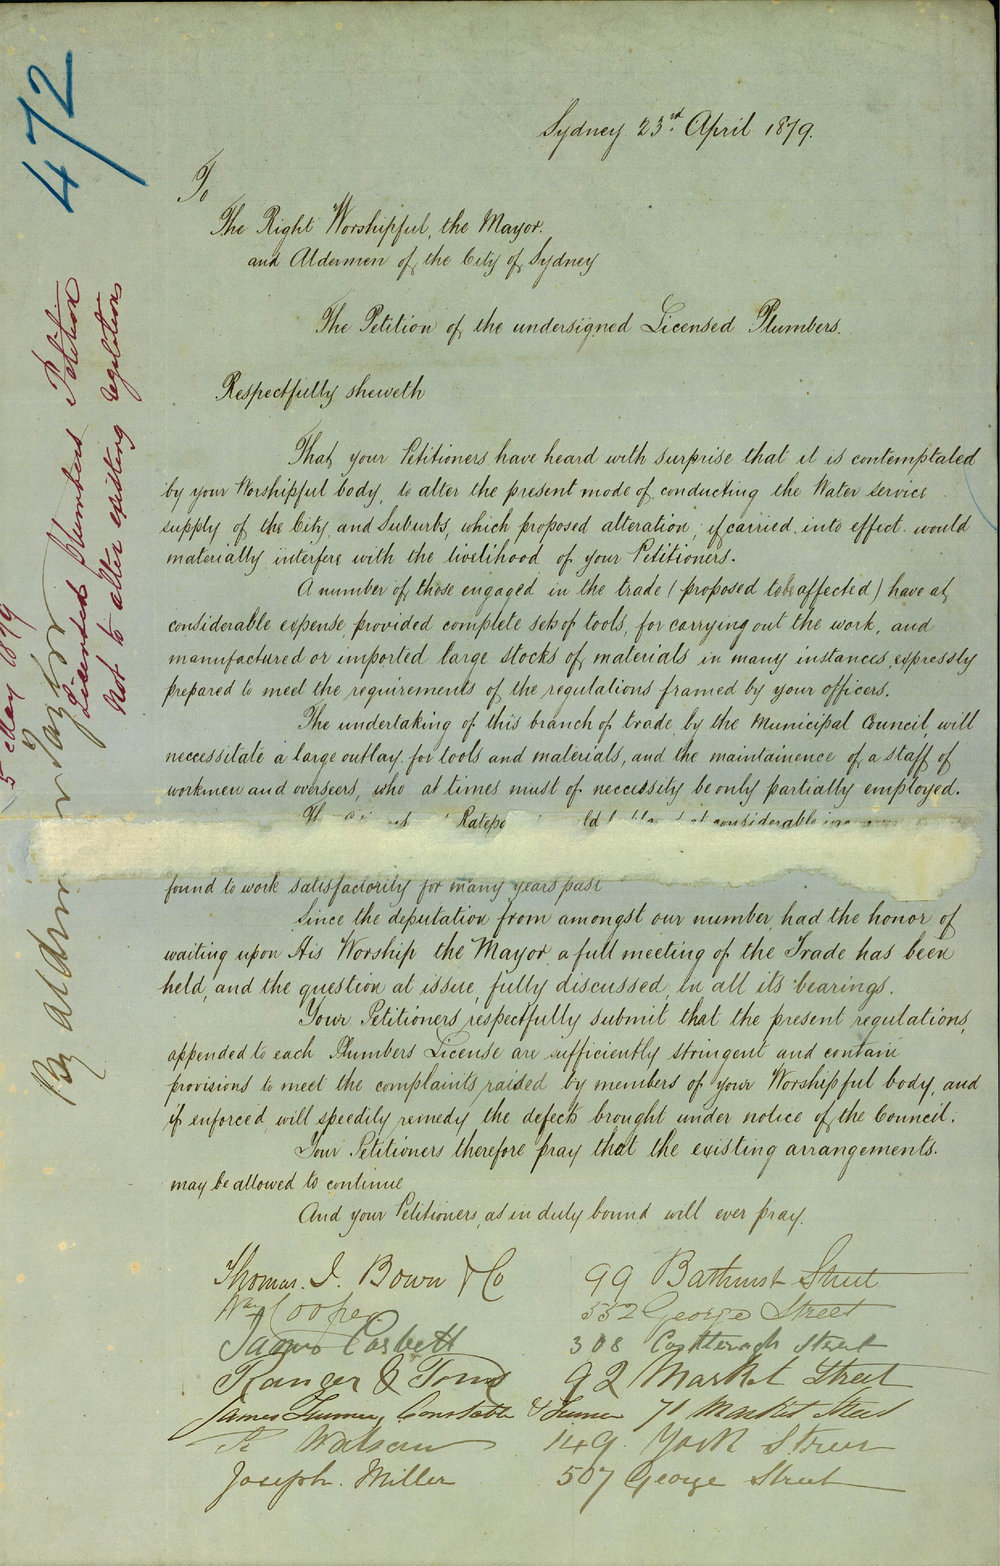 472
5 May 1879
By Alderman Taylor
Licensed Plumbers Petition
not to alter existing regulations
Sydney 23rd April 1879.
To
The Right Worshipful, the Mayor.
and Aldermen of the City of Sydney
The Petition of the undersigned Licensed Plumbers.
Respectfully sheweth
That your Petitioners have heard with surprise that it is contemplated
by your Worshipful body, to alter the present mode of conducting the Water service
supply of the City and Suburbs, which proposed alteration, if carried into effect would
materially interfere with the livelihood of your Petitioners.
A number of those engaged in the trade (proposed to be affected) have at
considerable expense provided complete sets of tools, for carrying out the work, and
manufactured or imported large stocks of materials in many instances expressly
prepared to meet the requirements of the regulations framed by your officers.
The undertaking of this branch of trade by the Municipal Council, will
neccessitate a large outlay for tools and materials, and the maintainence of a staff of
workmen and overseers, who at times must of neccessity be only partially employed.
considerable
found to work satisfactorily for many years past
Since the deputation from amongst our number, had the honor of
waiting upon His Worship the Mayor a full meeting of the Trade has been
held, and the question at issue, fully discussed in all its bearings.
Your Petitioners respectfully submit that the present regulations,
appended to each Plumbers License are sufficiently stringent and contain
provisions to meet the complaints raised by members of your Worshipful body, and
if enforced, will speedily remedy the defects brought under notice of the Council.
Your Petitioners therefore pray that the existing arrangements.
may be allowed to continue
And your Petitioners, as in duty bound will ever pray.
Thomas. J. Bown & Co 99 Bathurst Street
Wm Cooper 552 George Street
James Corbett 308 Castlereagh Street
Ranger & Toms 92 Market Street
James Turner, Constable & Turner 71 Market Street
R Watson 149 York Street
Joseph. Miller 507 George Street